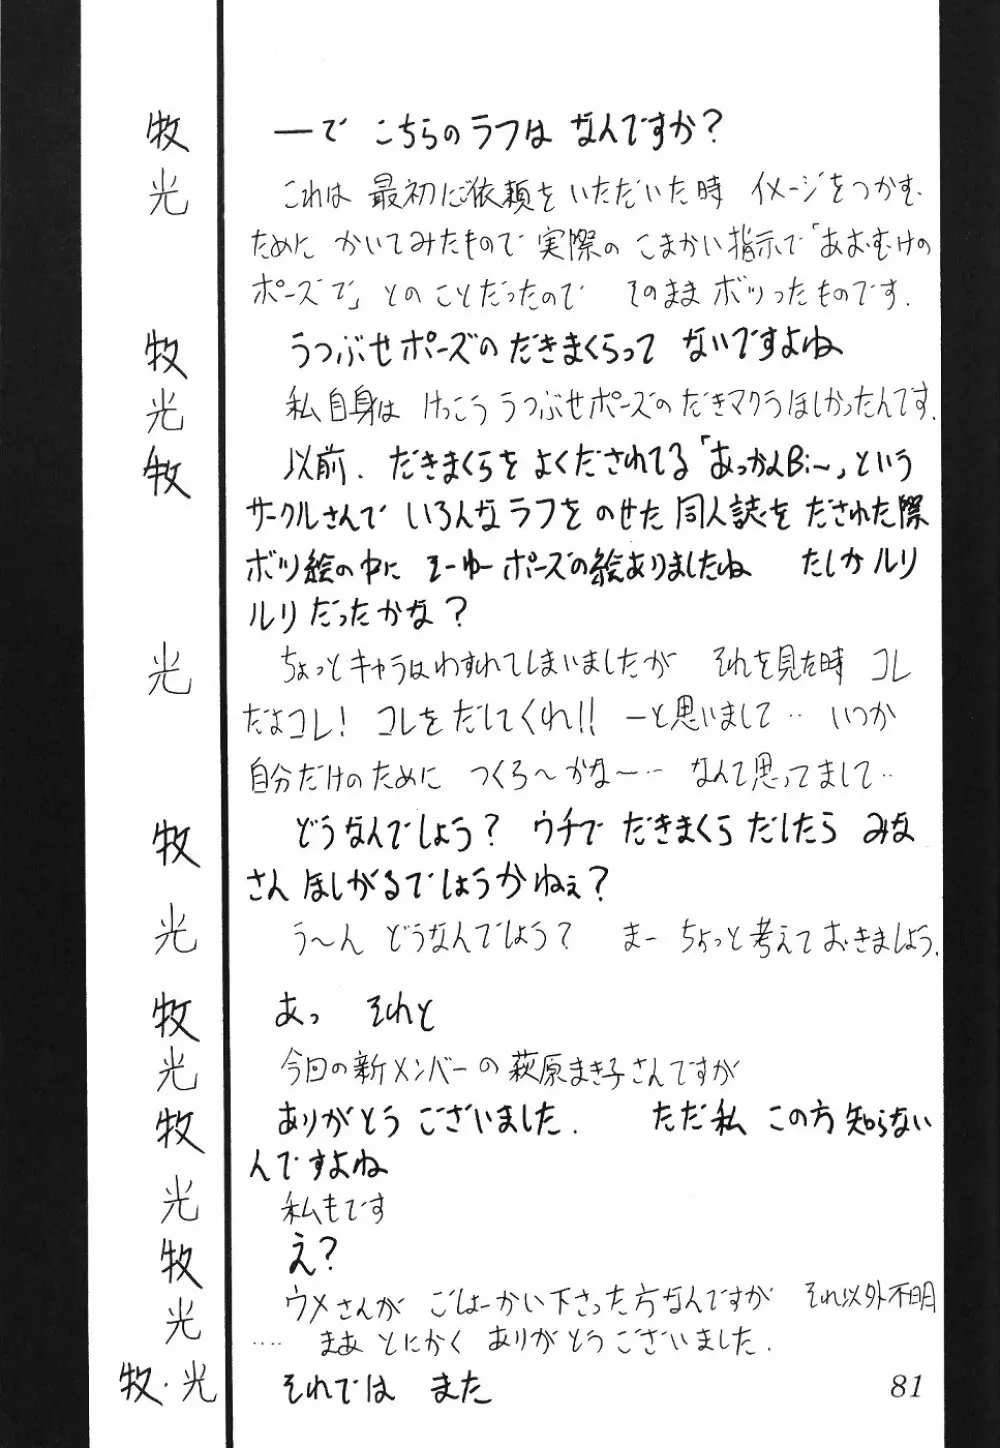 牧 ーで こちらのラフは なんですか？
光 これは 最初にご依頼を いただいた時 イメージをつかむ
ために かいてみたもので 実際の こまかい指示で「あおむけの
ポーズで」とのことだったので そのまま ボツったものです.
牧 うつぶせポーズの だきまくらって ないですよね
光 私自身は けっこう うつぶせポーズの だきマクラほしかったんです.
牧 以前. だきまくらを よくだされてる「あっかんBi〜」という
サークルさんで いろんなラフを のせた 同人誌を だされた際
ボツ絵の中に そーゆーポーズの絵ありましたね たしかルリ
ルリだったかな？
光 ちょっとキャラはわすれてしまいましたが それを見た時 コレ
だよコレ！ コレをだしてくれ!! ーと思いまして‥ いつか
自分だけのために つくろ〜かな〜‥ なんて思ってまして‥
牧 どうなんでしょう？ ウチで だきまくら だしたら みな
さん ほしがるでしょうかねぇ？
光 う〜ん どうなんでしょう？ まー ちょっと考えておきましょう.
牧 あっ それと
光 今回の新メンバーの 萩原まき子さんですが
牧 ありがとう ございました. ただ私 この方 知らない
んですよね
光 私もです
牧 え？
光 ウメさんが ごしょーかい下さった方なんですが それ以外不明
‥‥ まあ とにかく ありがとうございました.
牧・光 それでは また
81